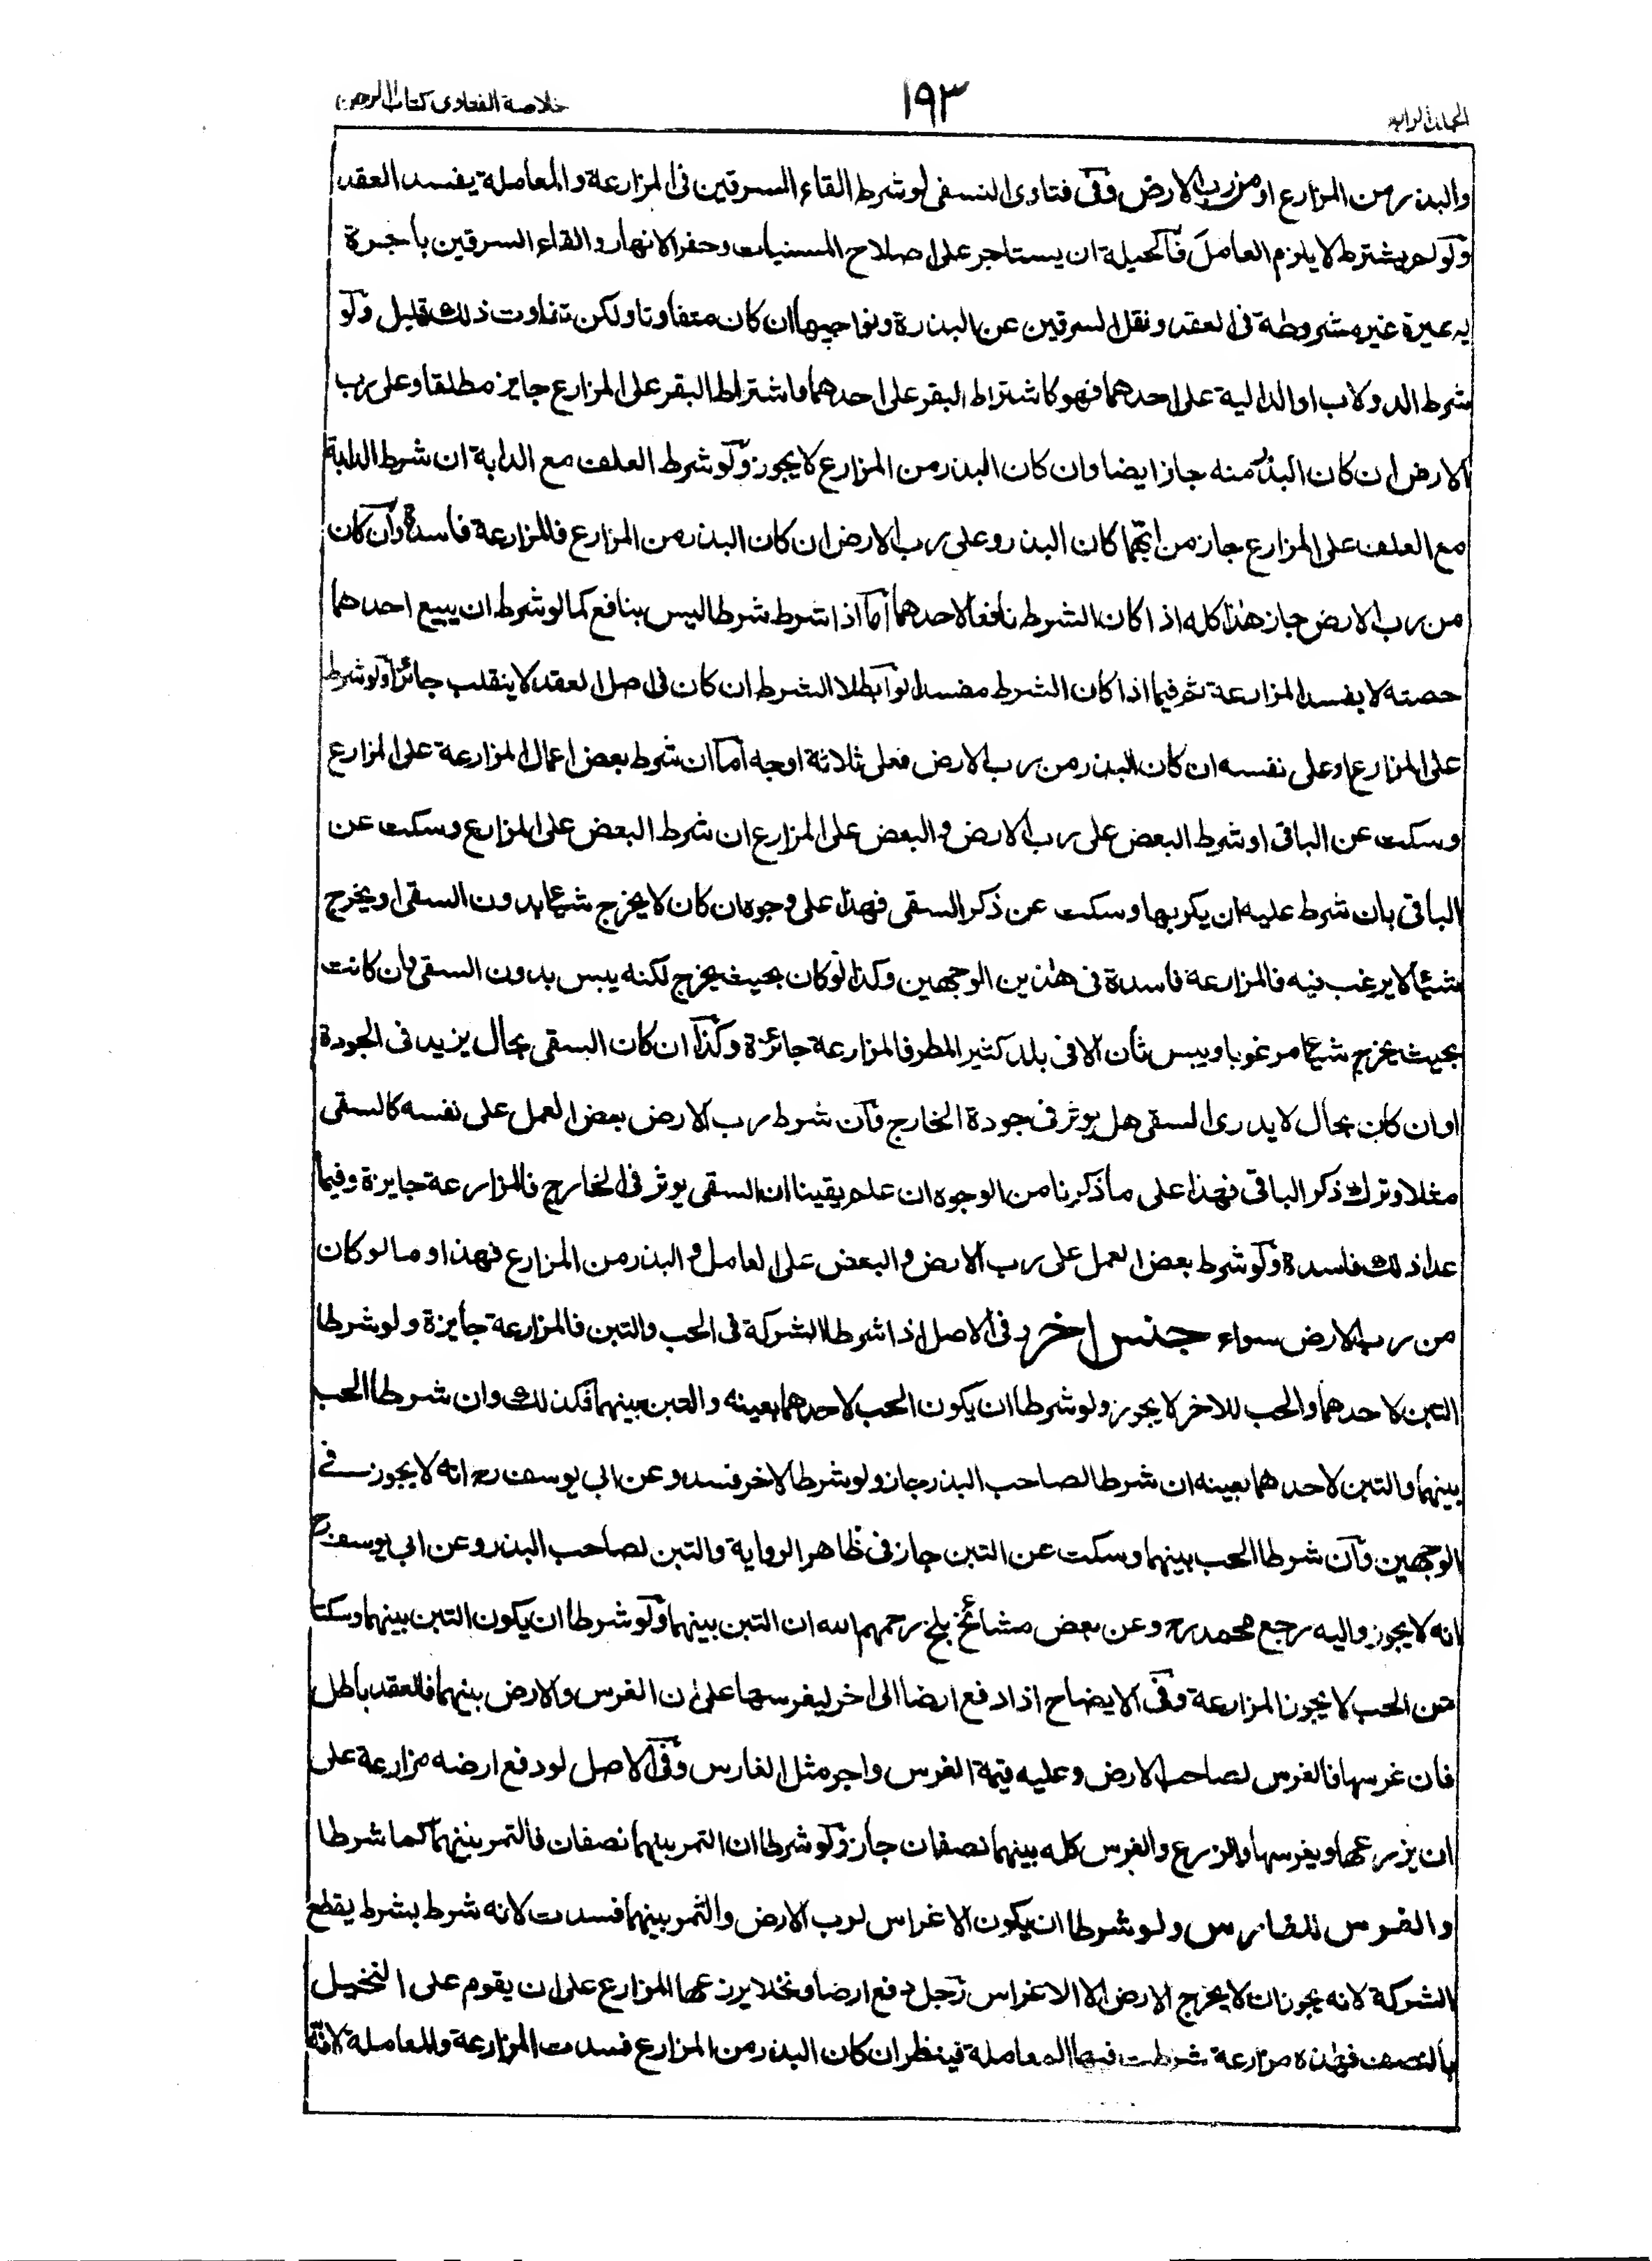 المجلد الرابع
١٩٣
خلاصة الفتاوى كتاب الرهن
والبذر من المزارع او من رب الارض وفى فتاوى النسفى لو شرط القاء السرقين فى المزارعة والمعاملة يفسد العقد
ولو لم يشترط لا يلزم العامل فالحيلة ان يستاجر على اصلاح المسنيات وحفر الانهار والقاء السرقين باجرة
يسيرة غير مشروطة فى العقد ونقل السرقين عن البذرة ونواحيها ان كان متفاوتا ولكن تفاوت ذلك قليل ولو
شرط الدولاب او الدالية على احدهما فهو كاشتراط البقر على احدهما واشتراط البقر على المزارع جايز مطلقا وعلى رب
الارض ان كان البذر منه جاز ايضا وان كان البذر من المزارع لا يجوز ولو شرط العلف مع الدابة ان شرط الدابة
مع العلف على المزارع جاز من ايهما كان البذر وعلى رب الارض ان كان البذر من المزارع فالمزارعة فاسدة وان كان
من رب الارض جاز هذا كله اذا كان الشرط نافعا لاحدهما اما اذا شرط شرطا ليس بنافع كما لو شرط ان يبيع احدهما
حصته لا يفسد المزارعة ثم فيما اذا كان الشرط مفسدا لو ابطلا الشرط ان كان فى اصل العقد لا ينقلب جائزا ولو شرط
على المزارع او على نفسه ان كان البذر من رب الارض فعلى ثلاثة اوجه اما ان شرط بعض اعمال المزارعة على المزارع
وسكت عن الباقى او شرط البعض على رب الارض والبعض على المزارع ان شرط البعض على المزارع وسكت عن
الباقى بان شرط عليه ان يكربها وسكت عن ذكر السقى فهذا على وجوه ان كان لا يخرج شيئا بدون السقى او يخرج
شيئا لا يرغب فيه فالمزارعة فاسدة فى هذين الوجهين وكذا لو كان بحيث يخرج لكنه يبس بدون السقى وان كانت
بحيث يخرج شيئا مرغوبا ويبس ثان الا فى بلد كثير المطر فالمزارعة جائزة وكذا ان كان السقى بحال يزيد فى الجودة
او ان كان بحال لا يدرى السقى هل يوثر فى جودة الخارج وان شرط رب الارض بعض العمل على نفسه كالسقى
مثلا وترك ذكر الباقى فهذا على ما ذكرنا من الوجوه ان علم يقينا ان السقى يوثر فى الخارج فالمزارعة جايزة وفيما
عدا ذلك فاسدة ولو شرط بعض العمل على رب الارض والبعض على العامل والبذر من المزارع فهذا وما لو كان
من رب الارض سواء جنس اخر وفى الاصل اذا شرطا الشركة فى الحب والتبن فالمزارعة جايزة ولو شرطا
التبن لاحدهما والحب للاخر لا يجوز ولو شرطا ان يكون الحب لاحدهما بعينه والتبن بينهما فكذلك وان شرطا الحب
بينهما والتبن لاحدهما بعينه ان شرطا لصاحب البذر جاز ولو شرطا لاخر فسد وعن ابى يوسف رح انه لا يجوز فى
الوجهين وان شرطا الحب بينهما وسكت عن التبن جاز فى ظاهر الرواية والتبن لصاحب البذر وعن ابى يوسف رح
انه لا يجوز واليه رجع محمد رح وعن بعض مشائخ بلخ رحمهم الله ان التبن بينهما ولو شرطا ان يكون التبن بينهما وسكتا
عن الحب لا يجوز المزارعة وفى الايضاح اذا دفع ارضا الى اخر ليغرسها على ان الغرس والارض بينهما فالعقد باطل
فان غرسها فالغرس لصاحب الارض وعليه قيمة الغرس واجر مثل الغارس وفى الاصل لو دفع ارضه مزارعة على
ان يزرعها ويغرسها والزرع والغرس كله بينهما نصفان جاز ولو شرطا ان الثمر بينهما نصفان فالثمر بينهما كما شرطا
والغرس للغارس ولو شرطا ان يكون الاغراس لرب الارض والثمر بينهما فسدت لانه شرط بشرط يقطع
الشركة لانه يجوز ان لا يخرج الارض الا الاغراس رجل دفع ارضا ونخلا يزرعها المزارع على ان يقوم على النخيل
بالنصف فهذه مزارعة شرطت فيها المعاملة فينظر ان كان البذر من المزارع فسدت المزارعة والمعاملة لانه